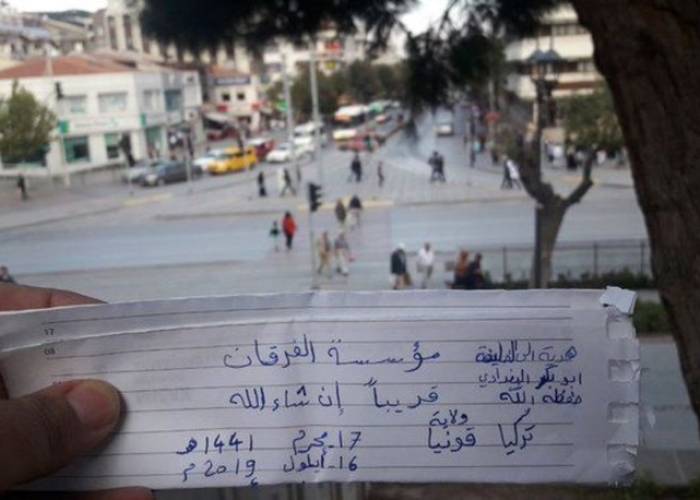 17
08
هدية الى الخليفة
ابو بكر البغدادي
حفظه الله
مؤسسة الفرقان
قريباً إن شاء الله
ولاية
تركيا قونيا
17- محرم 1441 هـ
16- أيلول 2019 م